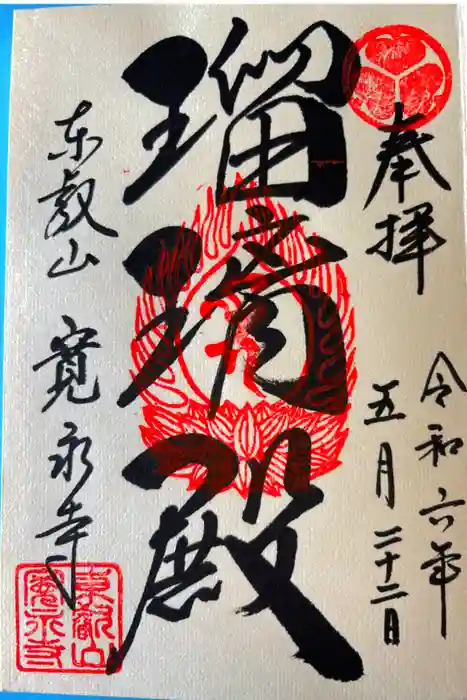 奉拝
令和六年
五月二十二日
瑠璃殿
東叡山 寛永寺
東叡山
寛永寺